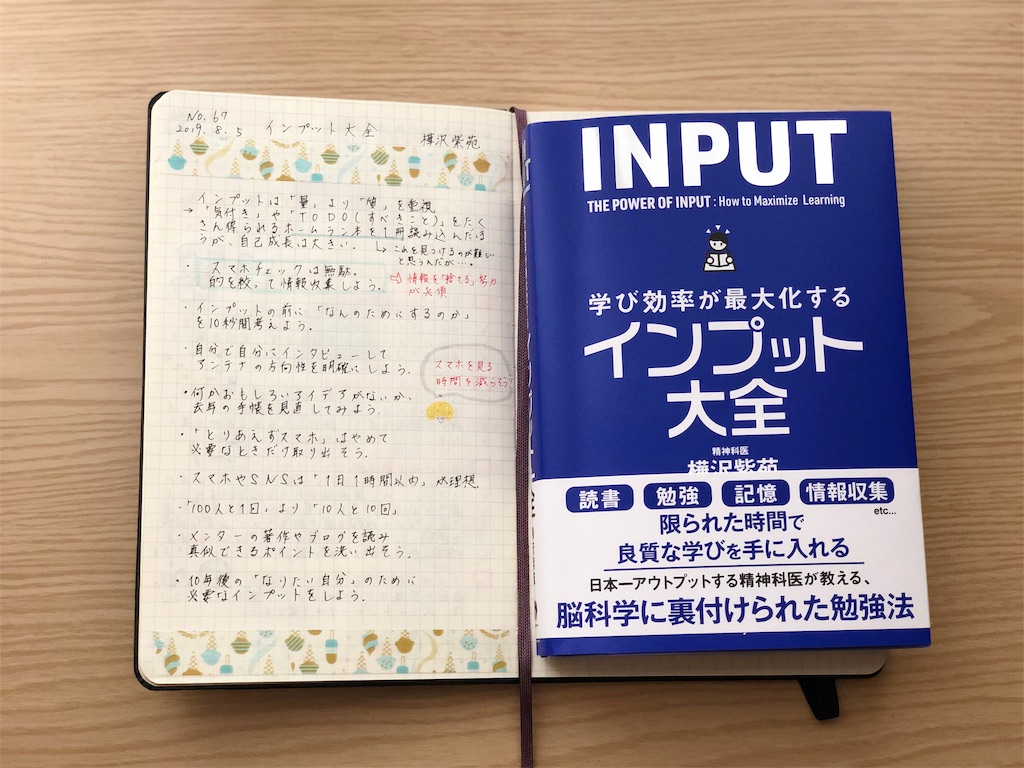 No. 67
2019. 8. 5 インプット大全 樺沢紫苑
インプットは「量」より「質」を重視
→「気付き」や「TODO(すべきこと)」をたく
さん得られるホームラン本を1冊読み込んだほ
うが、自己成長は大きい。
↳これを見つけるのが難しい
と思うんだが…。
・スマホチェックは無駄。
的を絞って情報収集しよう。
⇨情報を「捨てる」努力
が必須
・インプットの前に「なんのためにするのか」
を10秒間考えよう。
・自分で自分にインタビューして
アンテナの方向性を明確にしよう。
スマホを見る
時間を減らそう!
・何かおもしろいアイデアがないか、
去年の手帳を見直してみよう。
・「とりあえずスマホ」はやめて
必要なときだけ取り出そう。
・スマホやSNSは「1日1時間以内」が理想
・「100人と1回」より「10人と10回」
・メンターの著作やブログを読み
真似できるポイントを洗い出そう。
・10年後の「なりたい自分」のために
必要なインプットをしよう。
INPUT
THE POWER OF INPUT : How to Maximize Learning
学び効率が最大化する
インプット
大全
精神科医
樺沢紫苑
読書 勉強 記憶 情報収集
etc...
限られた時間で
良質な学びを手に入れる
日本一アウトプットする精神科医が教える、
脳科学に裏付けられた勉強法